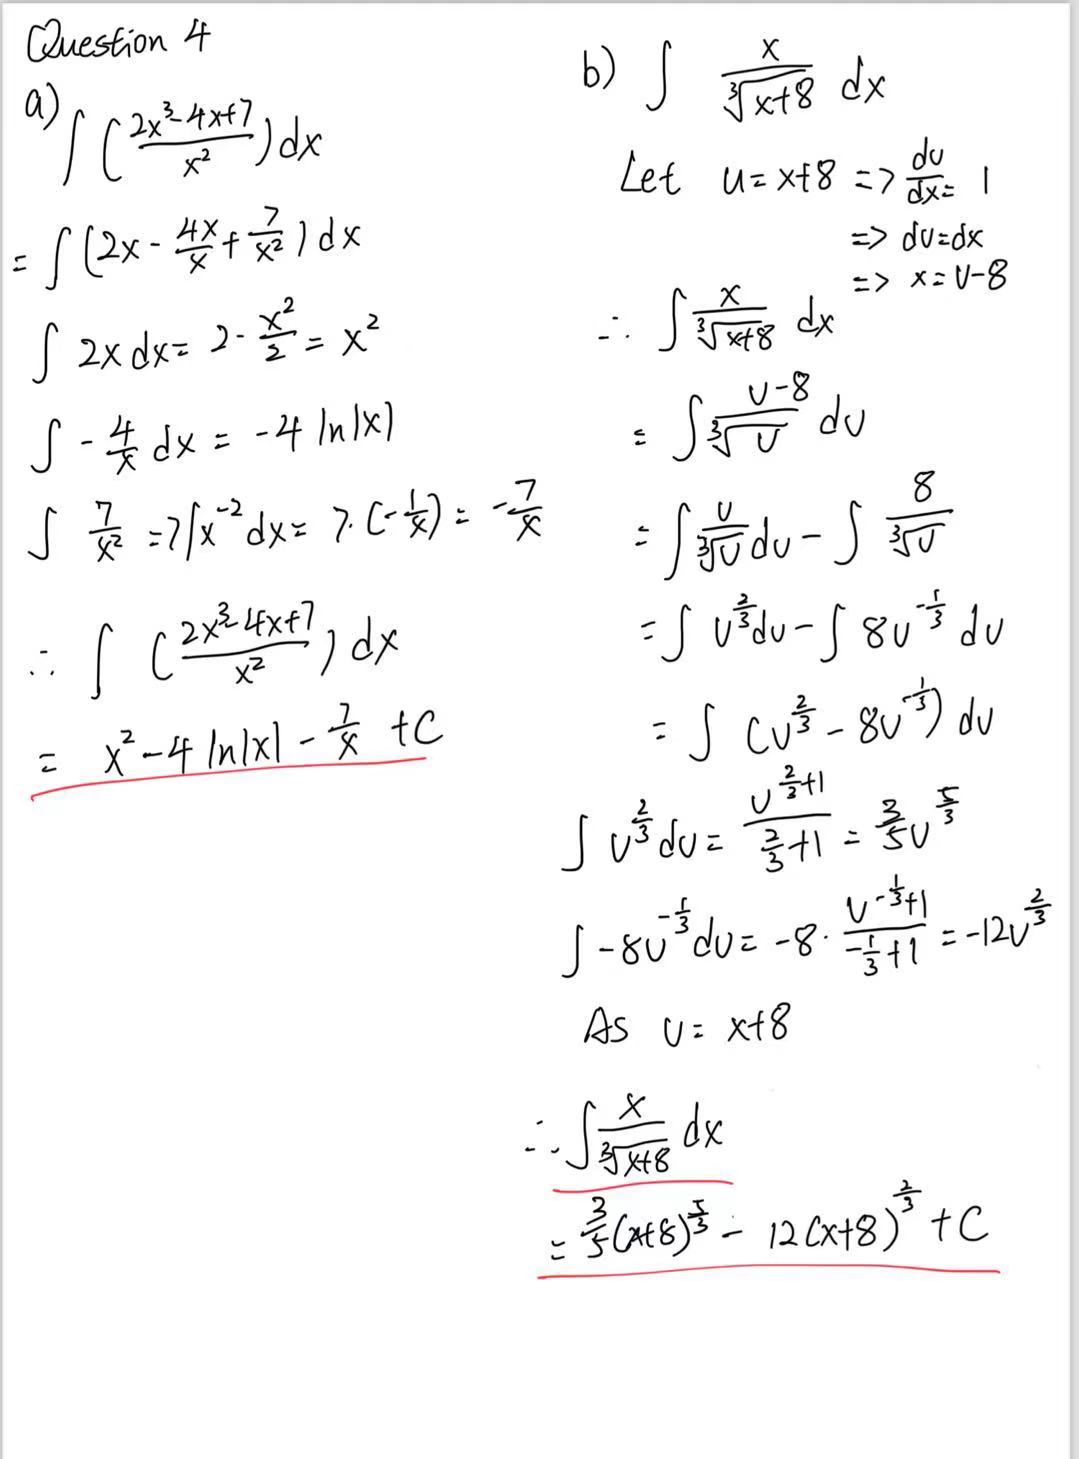 Question 4
a) ∫ ( (2x³-4x+7)/x² ) dx
= ∫ (2x - 4x/x + 7/x²) dx
∫ 2x dx = 2 · x²/2 = x²
∫ - 4/x dx = -4 ln|x|
∫ 7/x² = 7∫x⁻² dx = 7·(-1/x) = -7/x
∴ ∫ ( (2x³-4x+7)/x² ) dx
= x² - 4 ln|x| - 7/x + C
b) ∫ x/∛(x+8) dx
Let u = x+8 => du/dx = 1
=> du = dx
=> x = u-8
∴ ∫ x/∛(x+8) dx
= ∫ (u-8)/∛u du
= ∫ u/∛u du - ∫ 8/∛u
= ∫ u^(2/3) du - ∫ 8u^(-1/3) du
= ∫ (u^(2/3) - 8u^(-1/3)) du
∫ u^(2/3) du = u^(2/3+1)/(2/3+1) = 3/5 u^(5/3)
∫ -8u^(-1/3) du = -8 · u^(-1/3+1)/(-1/3+1) = -12u^(2/3)
As u = x+8
∴ ∫ x/∛(x+8) dx
= 3/5 (x+8)^(5/3) - 12(x+8)^(2/3) + C